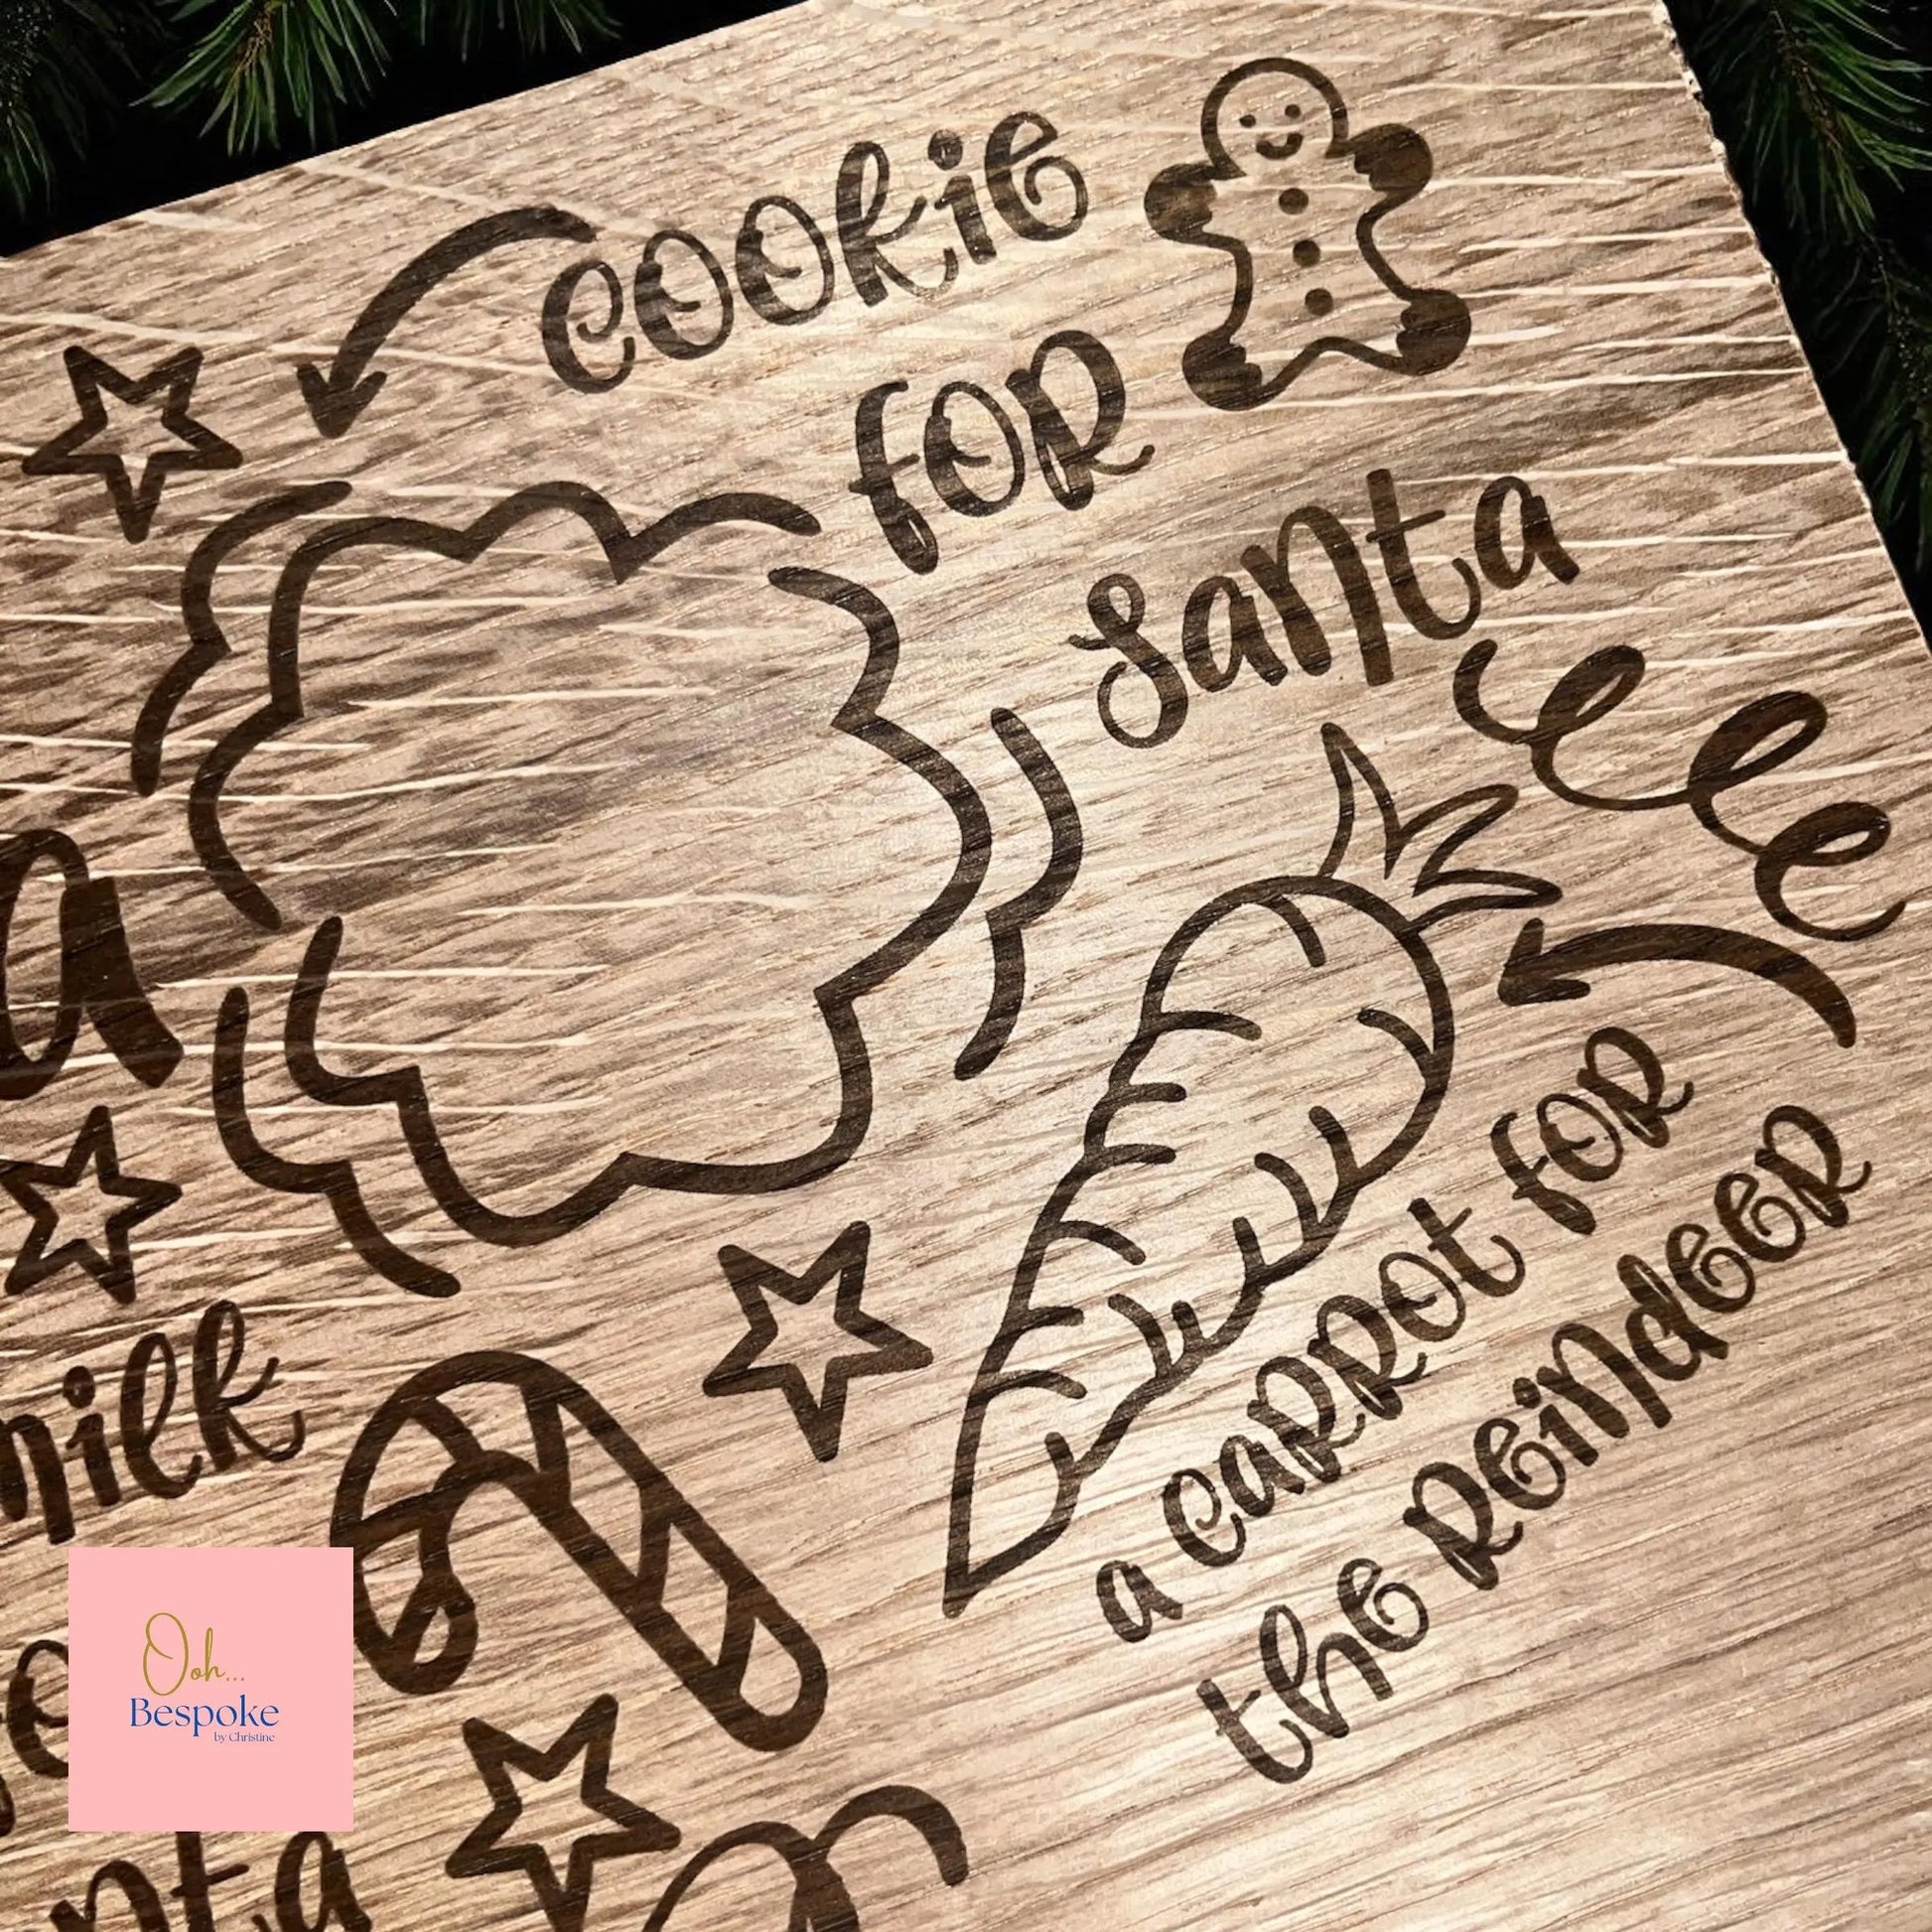 Cookie
for
Santa
a carrot for
the reindeer
milk
Ooh...
Bespoke
by Christine